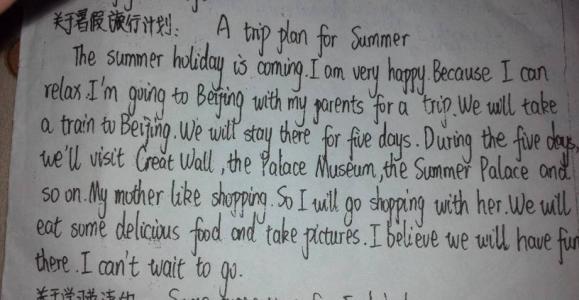 关于暑假旅行计划: A trip plan for Summer
The summer holiday is coming.I am very happy.Because I can
relax.I'm going to Beijing with my parents for a trip.We will take
a train to Beijing.We will stay there for five days.During the five days,
we'll visit Great Wall,the Palace Museum,the Summer Palace and
so on.My mother like shopping.So I will go shopping with her.We will
eat some delicious food and take pictures.I believe we will have fun
there.I can't wait to go.
关于学习